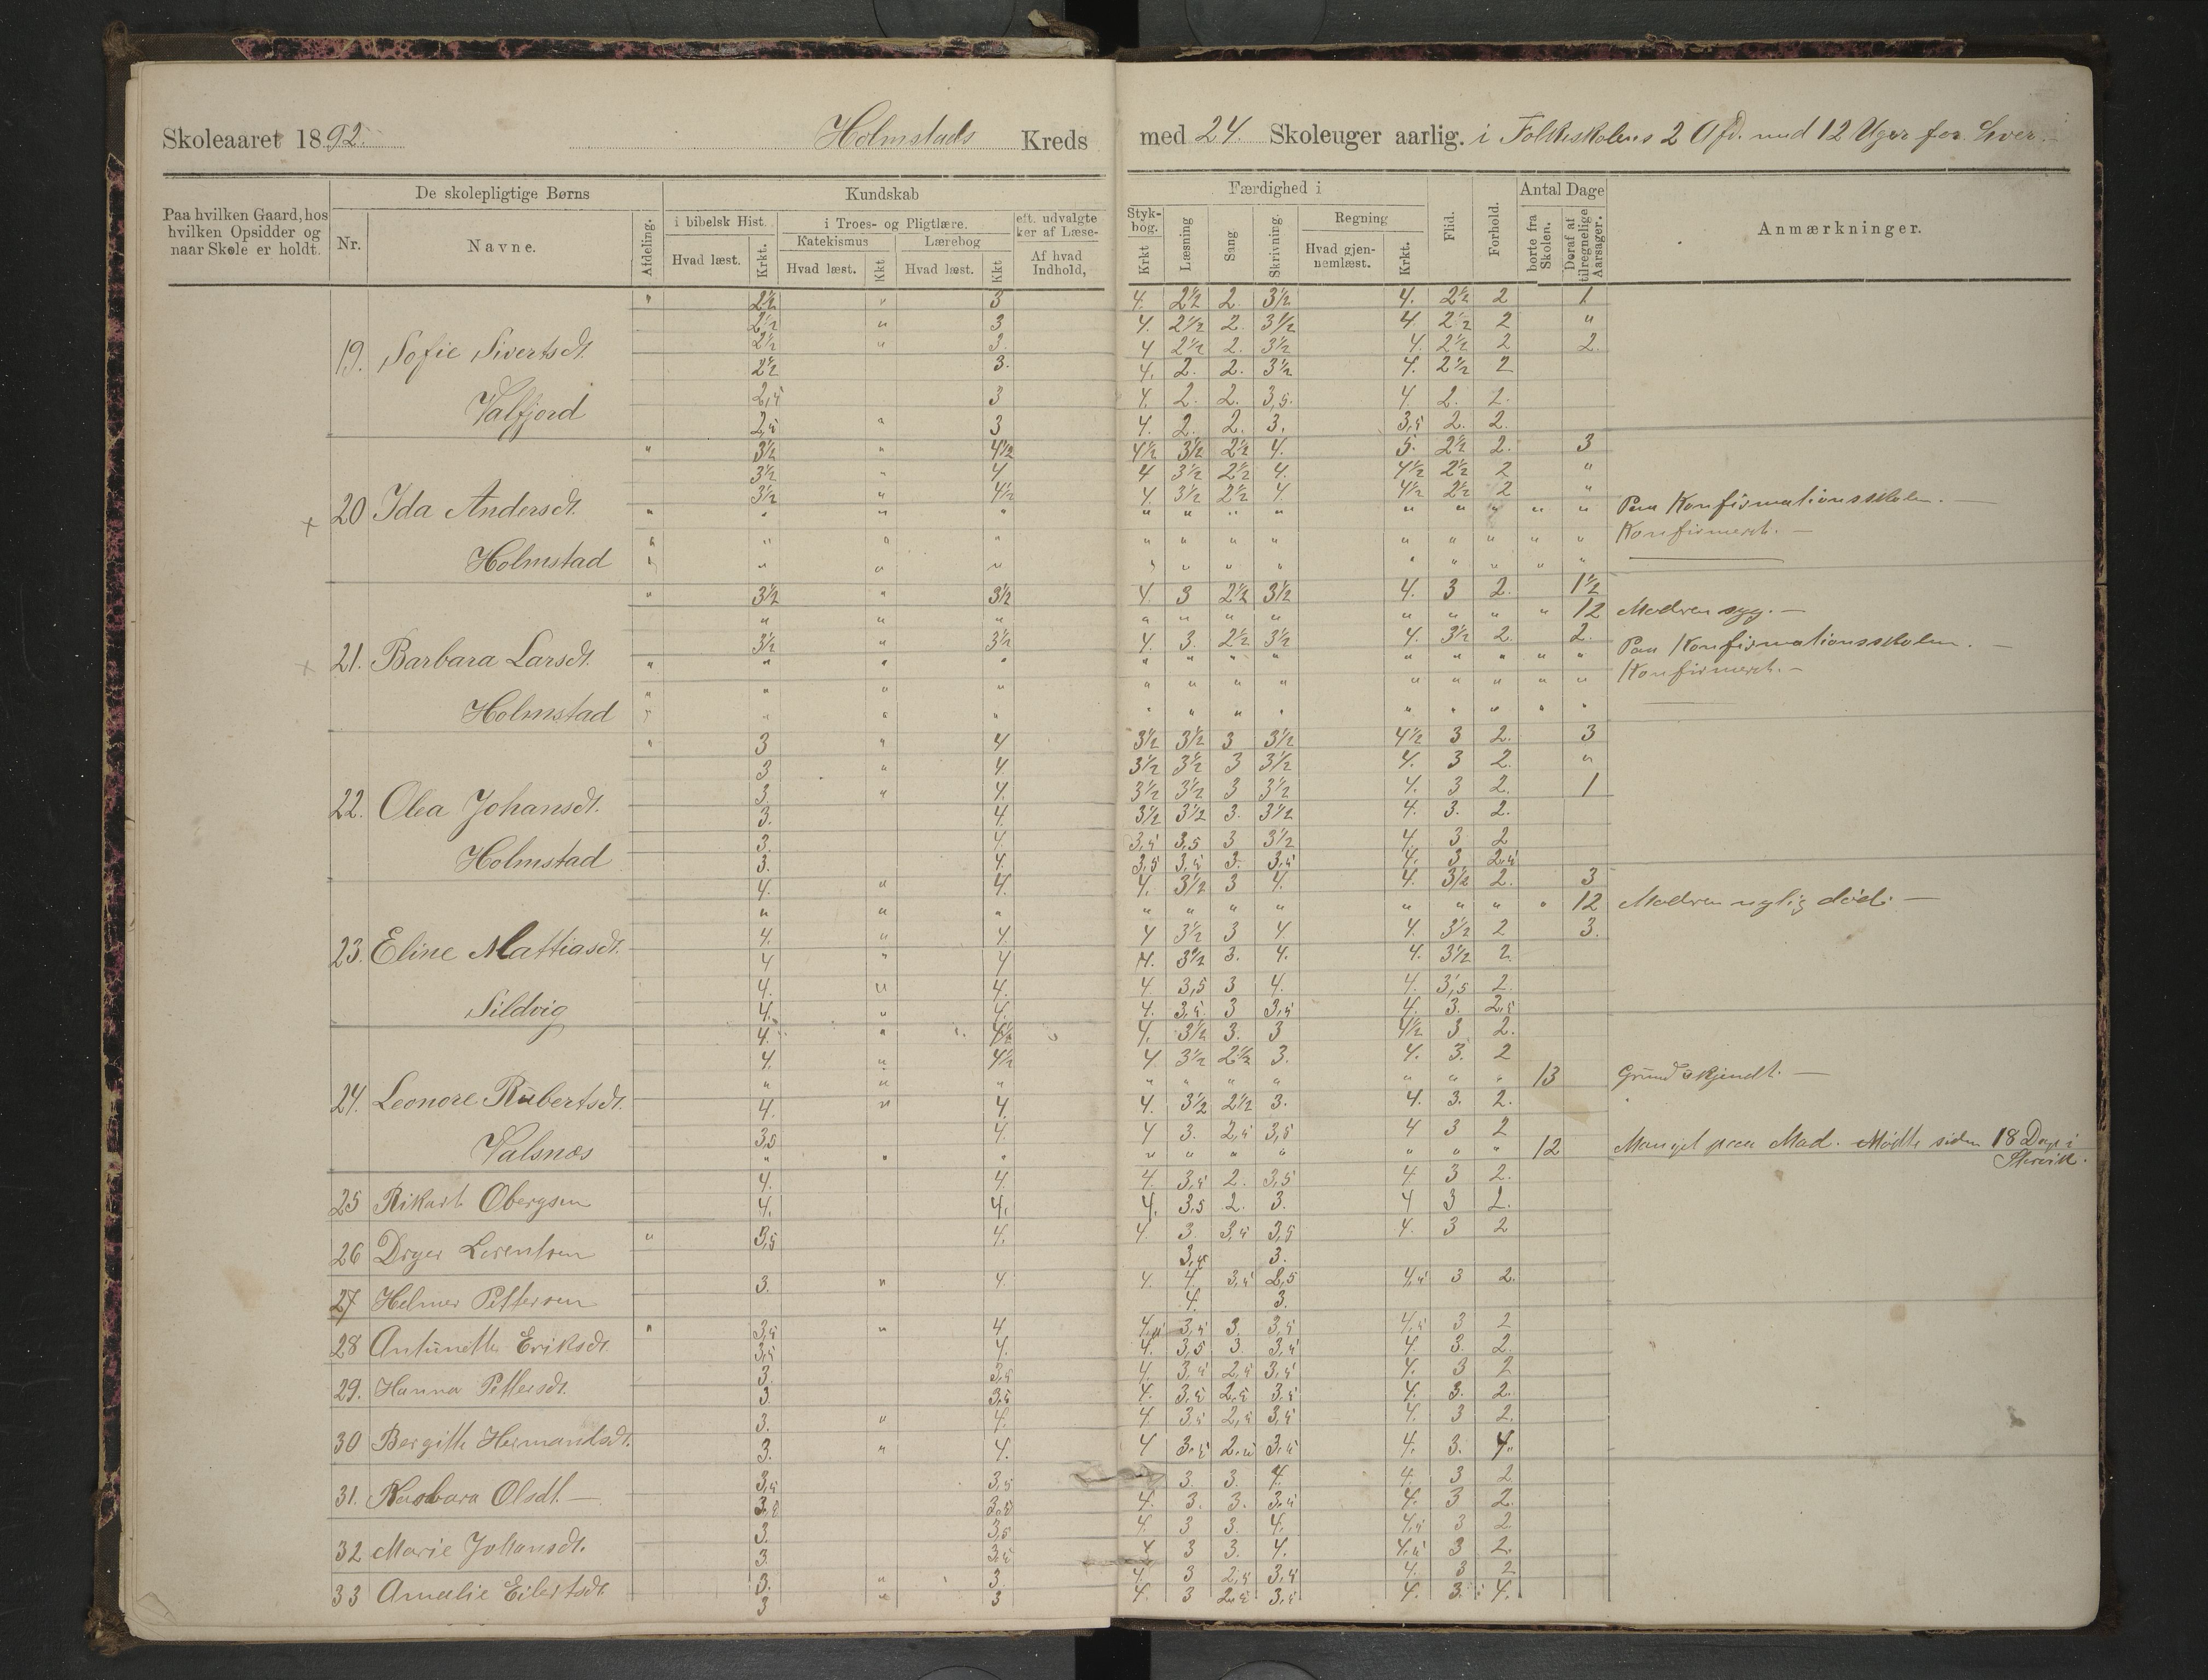 Skoleaaret 1892. Holmstads Kreds med 24. Skoleuger aarlig. i Folkeskolens 2 Afd. med 12 Uger for hver.-
Paa hvilken Gaard, hos hvilken Opsidder og naar Skole er holdt.
De skolepligtige Børns
Nr. Navne. Afdeling.
Kundskab
i bibelsk Hist. i Troes- og Pligtlære. eft. udvalgte
ker af Læse-
Katekismus Lærebog
Hvad læst. Krkt. Hvad læst. Kkt Hvad læst. Kkt Af hvad Indhold,
Færdighed i
Styk-
bog. Krkt Læsning Sang Skrivning. Regning Hvad gjen-
nemlæst. Krkt. Flid. Forhold.
Antal Dage borte fra Skolen. Deraf af tilregnelige Aarsager.
Anmærkninger.
" 2½ " 3 4. 2½ 2. 3½ 4. 2½ 2 1
2½ " 3 4. 2½ 2. 3½ 4. 2½ 2 "
2½ " 3. 4 2½ 2. 3½ 4. 2½ 2 2.
19. Sofie Sivertsdt.
2½ 3. 4. 2. 2. 3½ 4. 2½ 2
2,5 3 4. 2. 2. 3,5. 4. 2. 2.
Valfjord
2,5 " 3 4. 2. 2. 3. 3,5 2. 2.
" 3½ " 4½ 4½ 3½ 2½ 4. 5. 2½ 2. 3
3½ " 4 4 3½ 2½ 4. 4½ 2½ 2 "
3½ " 4½ 4. 3½ 2½ 4 4½ 2½ 2 "
+ 20 Ida Andersdt.
" " " " " " " " " " " " " Paa Konfirmationsskolen. -
" " " " " " " " " " " " " Konfirmert. -
Holmstad
" " " " " " " " " " " " "
" 3½ " 3½ 4. 3 2½ 3½ 4. 3 2. 1½
" " " " " " " " " " " 12 Modren syg. -
3½ " 3½ 4. 3. 2½ 3½ 4. 3½ 2. 2.
+ 21. Barbara Larsdt.
" " " " " " " " " " " " " Paa Konfirmationsskolen. -
" " " " " " " " " " " " " Konfirmert. -
Holmstad
" " " " " " " " " " " " "
" 3 " 4 3½ 3½ 3 3½ 4½ 3 2. 3
3 " 4. 3½ 3½ 3 3½ 4. 3 2. "
3. " 4. 3½ 3½ 3 3½ 4. 3 2. 1
22. Olea Johansdt.
3. 4. 3½ 3½ 3. 3½ 4. 3. 2.
3. 4. 3,5 3,5 3 3½ 4. 3 2
Holmstad
3. 4. 3,5 3,5 3. 3,5 4. 3 2,5
4. " 4. 4. 3½ 3 4. 4. 3½ 2. 3
" " " " " " " " " " " 12 Modren nylig død. -
4. " 4. 4 3½ 3 4 4. 3½ 2 3.
23. Eline Mattiasdt.
4 " 4 4. 3½ 3. 4. 4. 3½ 2.
4. " 4. 4 3,5 3 4. 4. 3,5 2.
Sildvig
4. " 4. 4. 3,5 3 3,5 4. 3. 2,5
4. " 4½ 4. 3½ 3. 3 4½ 3 2.
4. " 4½ 4 3½ 2½ 3. 4. 3. 2
" " " " " " " " " " 13 Grund ukjendt. -
24. Leonore Rubertsdt.
4. " 4. 4. 3½ 2½ 3. 4. 3. 2.
3,5 4. 4 3. 2,5 3,5 4 3 2
Valsnes
" " " " " " " " " " 12 Mangel paa Mad. Mødte siden 18 Dage i
4. 4. 4. 3,5 2. 3,5 4 3 2.
25 Rikart Obergsen
4. 4. 4. 3,5 2. 3. 4 3 2.
" 3,5 4. 4. 3 3,5 3,5 4. 3 2
26 Dryer Lorentsen
3,5 3.
3. " 4. 4. 4. 3,5 2,5 4,5 3 2.
27 Helmer Pettersen
4. 3.
" 3,5 " 4 4,5 3,5 3. 3,5 4,5 3 2
28 Antunette Eriksdt.
3,5 4. 4. 3,5 3. 3,5 4. 3. 2.
3. 3,5 4. 3,5 2,5 3,5 4. 3 2
29. Hanna Pettersdt.
3 3,5 4. 3,5 2,5 3,5 4. 3. 2.
3. " 4. 4. 3,5 2,5 3,5 4. 3 2.
30 Bergitte Hermandsdt.
3. " 4. 4 3,5 2,5 3,5 4. 3. 4.
3,5 3,5 3. 3. 4. 4. 3 2
31. Barbara Olsdt. -
3,5 3,5 4. 3. 3. 3,5 4. 3 2.
3. 3,5 4. 3 3. 4. 4,5 3 2
32 Marie Johansdt.
3. 3,5 4 3 3. 4. 4,5 3 2.
3. " 3. 4. 3 2,5 3,5 4. 3 2
33 Amalie Eilertsdt.
3 " 3 4. 3 2,5 3,5 4. 3. 4.